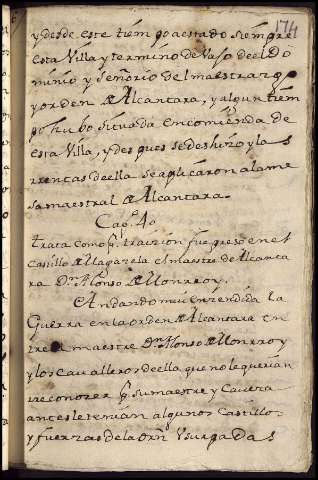 174
y desde este tiempo a estado siempre
esta Villa y termino de vaso de el Do
minio y señorio del maestrazgo
y orden de Alcantara, y algun tiem
po hubo situada encomienda de
esta Villa, y despues se deshizo y las
rrentas de ella se aplicaron a la me
sa maestral de Alcantara.
Capº 4º
trata como pr. traizion fue preso en el
Castillo de Magazela el maestre de Alcanta
ra Dn. Alonso de Monrroy.
Andando mui enzendida la
Guerra en la orden de Alcantara en
tre el maestre Dn. Alonso de Monrroy
y los cavalleros de ella que no le querian
rreconozer pr. su maestre y Cavera
antes le tenian algunos Castillos
y fuerzas de la orn. Vsurpadas